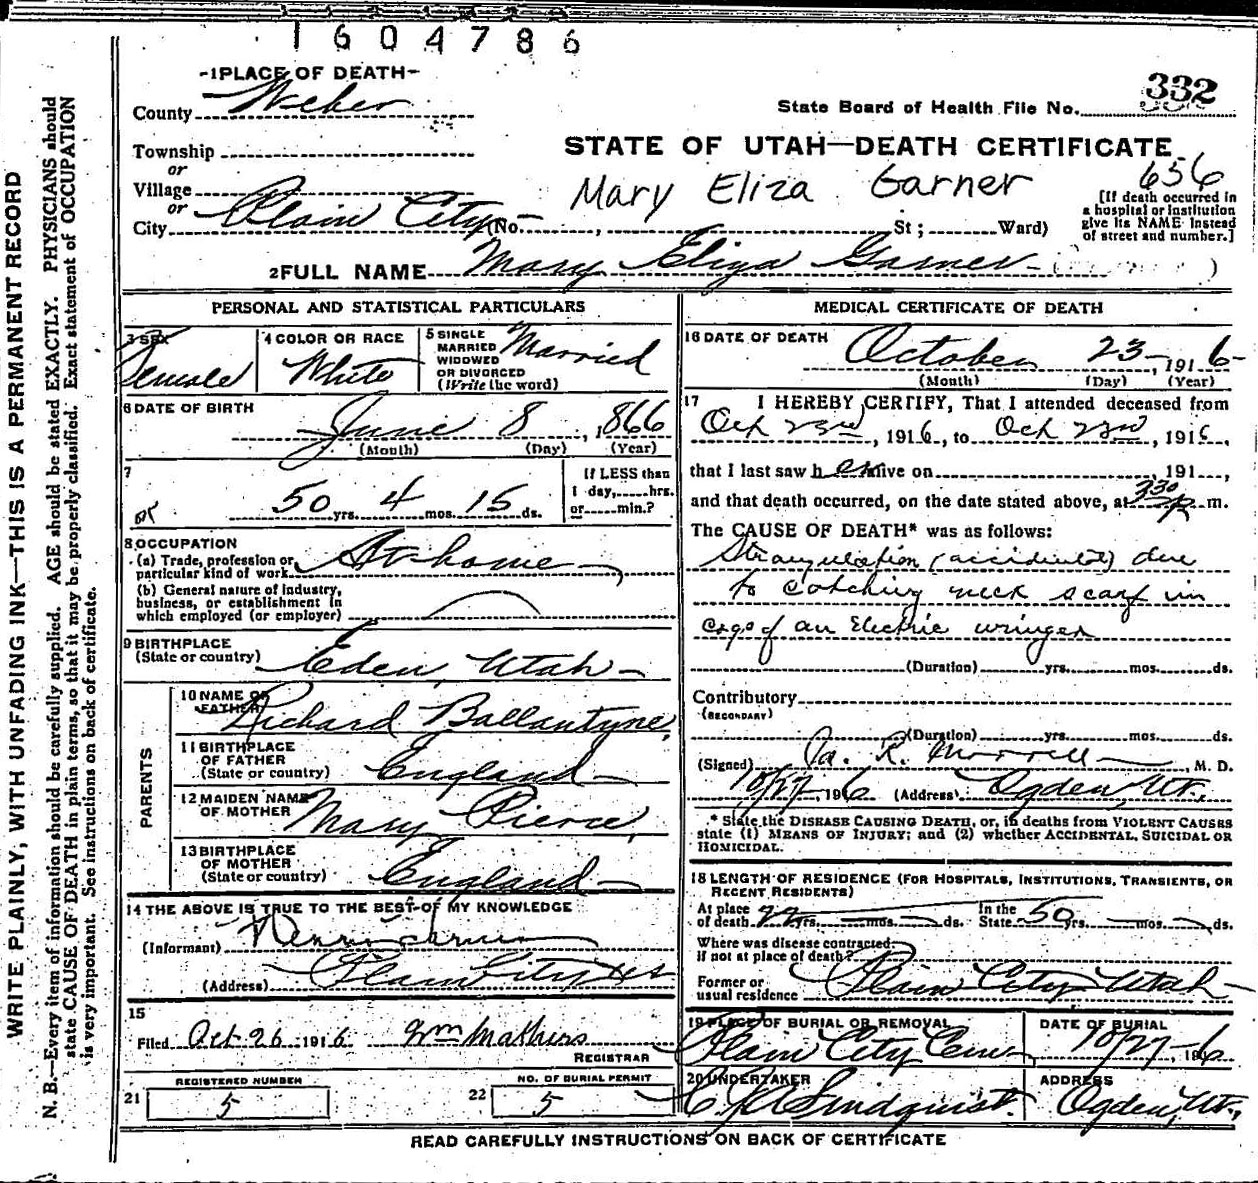 1604786
-1 PLACE OF DEATH-
County Weber
State Board of Health File No. 332
Township
or
Village
or
City Plain City (No. , St ; Ward)
STATE OF UTAH—DEATH CERTIFICATE
Mary Eliza Garner
656
[If death occurred in
a hospital or institution
give its NAME instead
of street and number.]
2 FULL NAME Mary Eliza Garner
PERSONAL AND STATISTICAL PARTICULARS
3 SEX
Female
4 COLOR OR RACE
White
5 SINGLE
MARRIED
WIDOWED
OR DIVORCED
(Write the word)
Married
6 DATE OF BIRTH
June 8, 1866
(Month) (Day) (Year)
7
50 yrs. 4 mos. 15 ds.
If LESS than
1 day, hrs.
or min.?
8 OCCUPATION
(a) Trade, profession or
particular kind of work At home
(b) General nature of industry,
business, or establishment in
which employed (or employer)
9 BIRTHPLACE
(State or country) Eden, Utah
PARENTS
10 NAME OF
FATHER Richard Ballantyne,
11 BIRTHPLACE
OF FATHER
(State or country) England
12 MAIDEN NAME
OF MOTHER Mary Pierce,
13 BIRTHPLACE
OF MOTHER
(State or country) England
14 THE ABOVE IS TRUE TO THE BEST OF MY KNOWLEDGE
(Informant)
(Address) Plain City
15
Filed Oct 26 1916 Wm Mathers
REGISTRAR
REGISTERED NUMBER
21 5
NO. OF BURIAL PERMIT
22 5
MEDICAL CERTIFICATE OF DEATH
16 DATE OF DEATH
October 23, 1916
(Month) (Day) (Year)
17 I HEREBY CERTIFY, That I attended deceased from
Oct 23rd, 1916, to Oct 23rd, 1916,
that I last saw her alive on , 191 ,
and that death occurred, on the date stated above, at 330 P m.
The CAUSE OF DEATH* was as follows:
Strangulation (accidental) due
to catching neck scarf in
cogs of an Electric wringer
(Duration) yrs. mos. ds.
Contributory
(SECONDARY)
(Duration) yrs. mos. ds.
(Signed) R. Morrell, M. D.
10/27, 1916 (Address) Ogden, Ut.,
* State the DISEASE CAUSING DEATH, or, in deaths from VIOLENT CAUSES
state (1) MEANS OF INJURY; and (2) whether ACCIDENTAL, SUICIDAL OR
HOMICIDAL.
18 LENGTH OF RESIDENCE (FOR HOSPITALS, INSTITUTIONS, TRANSIENTS, OR
RECENT RESIDENTS)
At place
of death yrs. mos. ds. In the
State 50 yrs. mos. ds.
Where was disease contracted
if not at place of death?
Former or
usual residence Plain City Utah
19 PLACE OF BURIAL OR REMOVAL
Plain City Cem
DATE OF BURIAL
10/27-, 1916
20 UNDERTAKER
Lindquist.
ADDRESS
Ogden, Ut.,
READ CAREFULLY INSTRUCTIONS ON BACK OF CERTIFICATE
WRITE PLAINLY, WITH UNFADING INK—THIS IS A PERMANENT RECORD
N. B.—Every item of information should be carefully supplied. AGE should be stated EXACTLY. PHYSICIANS should
state CAUSE OF DEATH in plain terms, so that it may be properly classified. Exact statement of OCCUPATION
is very important. See instructions on back of certificate.